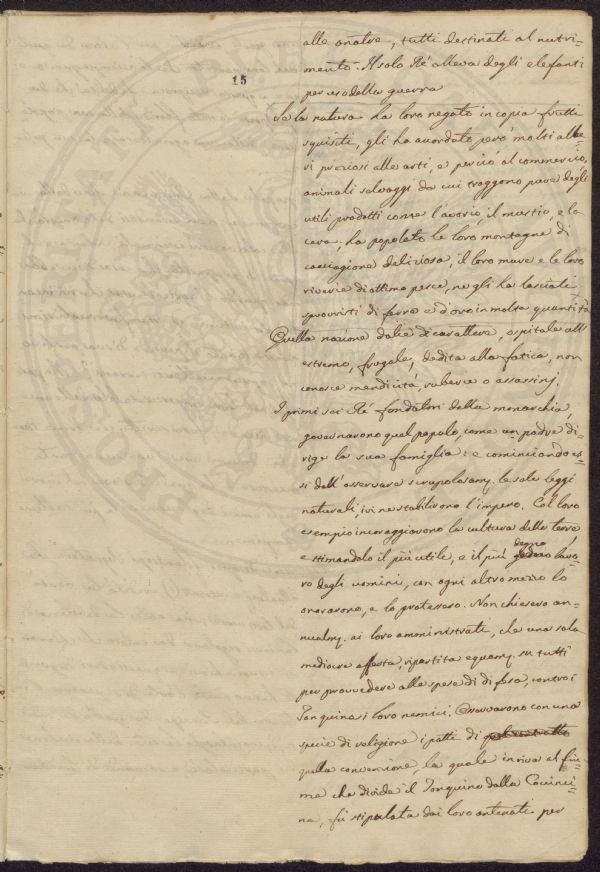 15
alle anatre, tutti destinati al nutri-
mento. Il solo Ré alleva degli elefanti
per uso della guerra
Se la natura ha loro negato in copia frutti
squisiti, gli ha accordato peró molti albe-
ri preziosi alle arti, e perció al commercio,
animali selvaggi da cui traggono pure degli
utili prodotti come l'avorio, il muschio, e la
cera, ha popolato le loro montagne di
cacciagione deliziosa, il loro mare e le loro
riviere di ottimo pesce, ne gli ha lasciati
sprovvisti di ferro e d'oro in molta quantitá
Quella nazione dolce di carattere, ospitale all'
estremo, frugale, dedita alla fatica, non
conosce mendicitá, ruberie o assassinj.
I primi sei Ré fondatori della monarchia,
governarono quel popolo, come un padre di-
rige la sua famiglia: e cominciando es-
si dall'osservare scrupolosamy. le sole leggi
naturali, ivi ne stabilirono l'impero. Col loro
esempio incoraggiorono la cultura delle terre
e stimandolo il piú utile, e il piú degno lavo-
ro degli uomini, con ogni altro mezzo lo
onorarono, e lo protessero. Non chiesero an-
nualmy. ai loro amministrati, che una sola
mediocre offerta, ripartita equamy. su tutti
per provvedere alle spese di difesa, contro i
Tonquinesi loro nemici. Osservarono con una
specie di religione i patti di
quella convenzione, la quale in riva al fiu-
me che divide il Tonquino dalla Cocinci-
na, fú stipulata dai loro antenati per